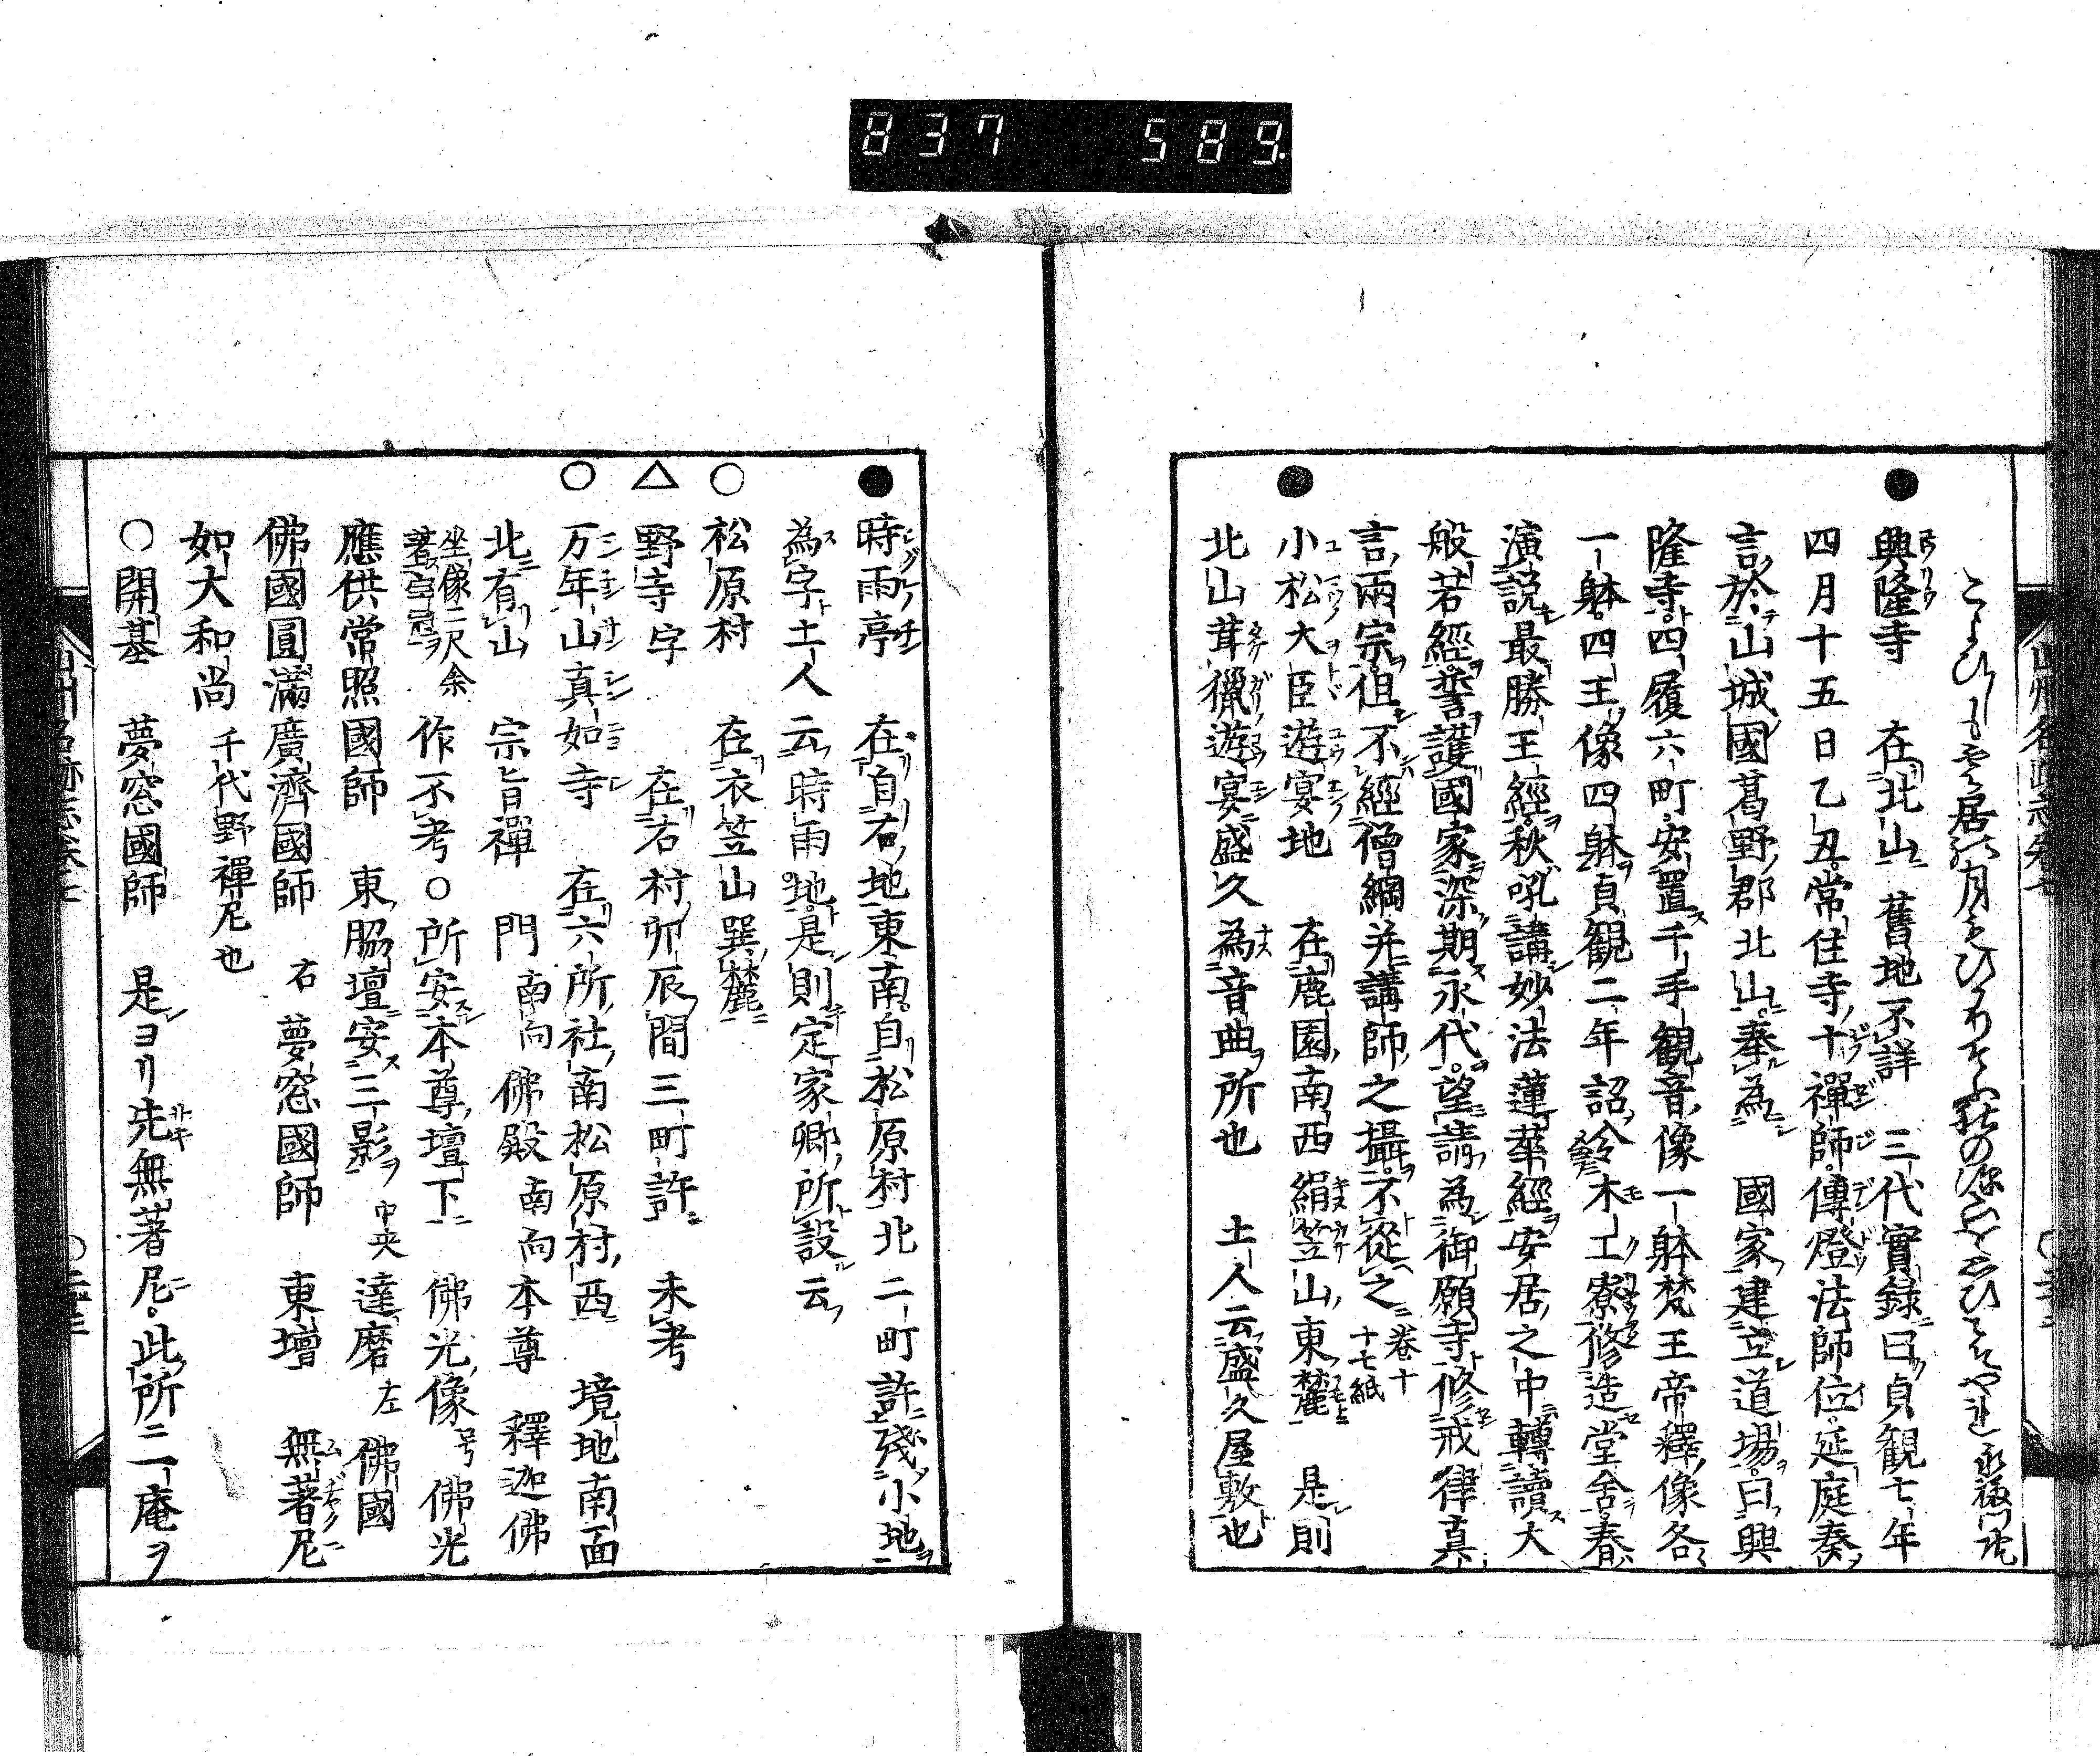 837 589
●興隆寺 在北山 舊地不詳 三代實録曰貞観七年
四月十五日乙丑常住寺十禪師傳燈法師位延庭奏
言於山城國葛野郡北山奉為 國家建立道場曰興
隆寺四履六町安置千手観音像一躰梵王帝釋像各
一躰四王像四躰貞観二年詔令木工寮修造堂舎春
演説最勝王經秋吼講妙法蓮華經安居之中轉讀大
般若經誓護國家深期永代望請為御願寺修戒律真
言兩宗但不經僧綱并講師之攝不從之 巻十
十七紙
●小松大臣遊宴地 在鹿園南西絹笠山東麓 是則
北山茸獵遊宴盛久為音曲所也 土人云盛久屋敷也
●時雨亭 在自右地東南自松原村北二町許残小地
為字土人云時雨地是則定家卿所設云
○松原村 在衣笠山巽麓
△野寺字 在右村卯辰間三町許 未考
○万年山真如寺 在六所社南松原村西 境地南面
北有山 宗旨禪 門南向 佛殿南向 本尊 釋迦佛
坐像二尺余
著宝冠
作不考○所安本尊壇下 佛光像号佛光
應供常照國師 東脇壇安三影 中央達磨 左佛國
佛國圓滿廣濟國師 右夢窓國師 東壇 無著尼
如大和尚 千代野禪尼也
○開基 夢窓國師 是ヨリ先無著尼此所ニ一庵ヲ